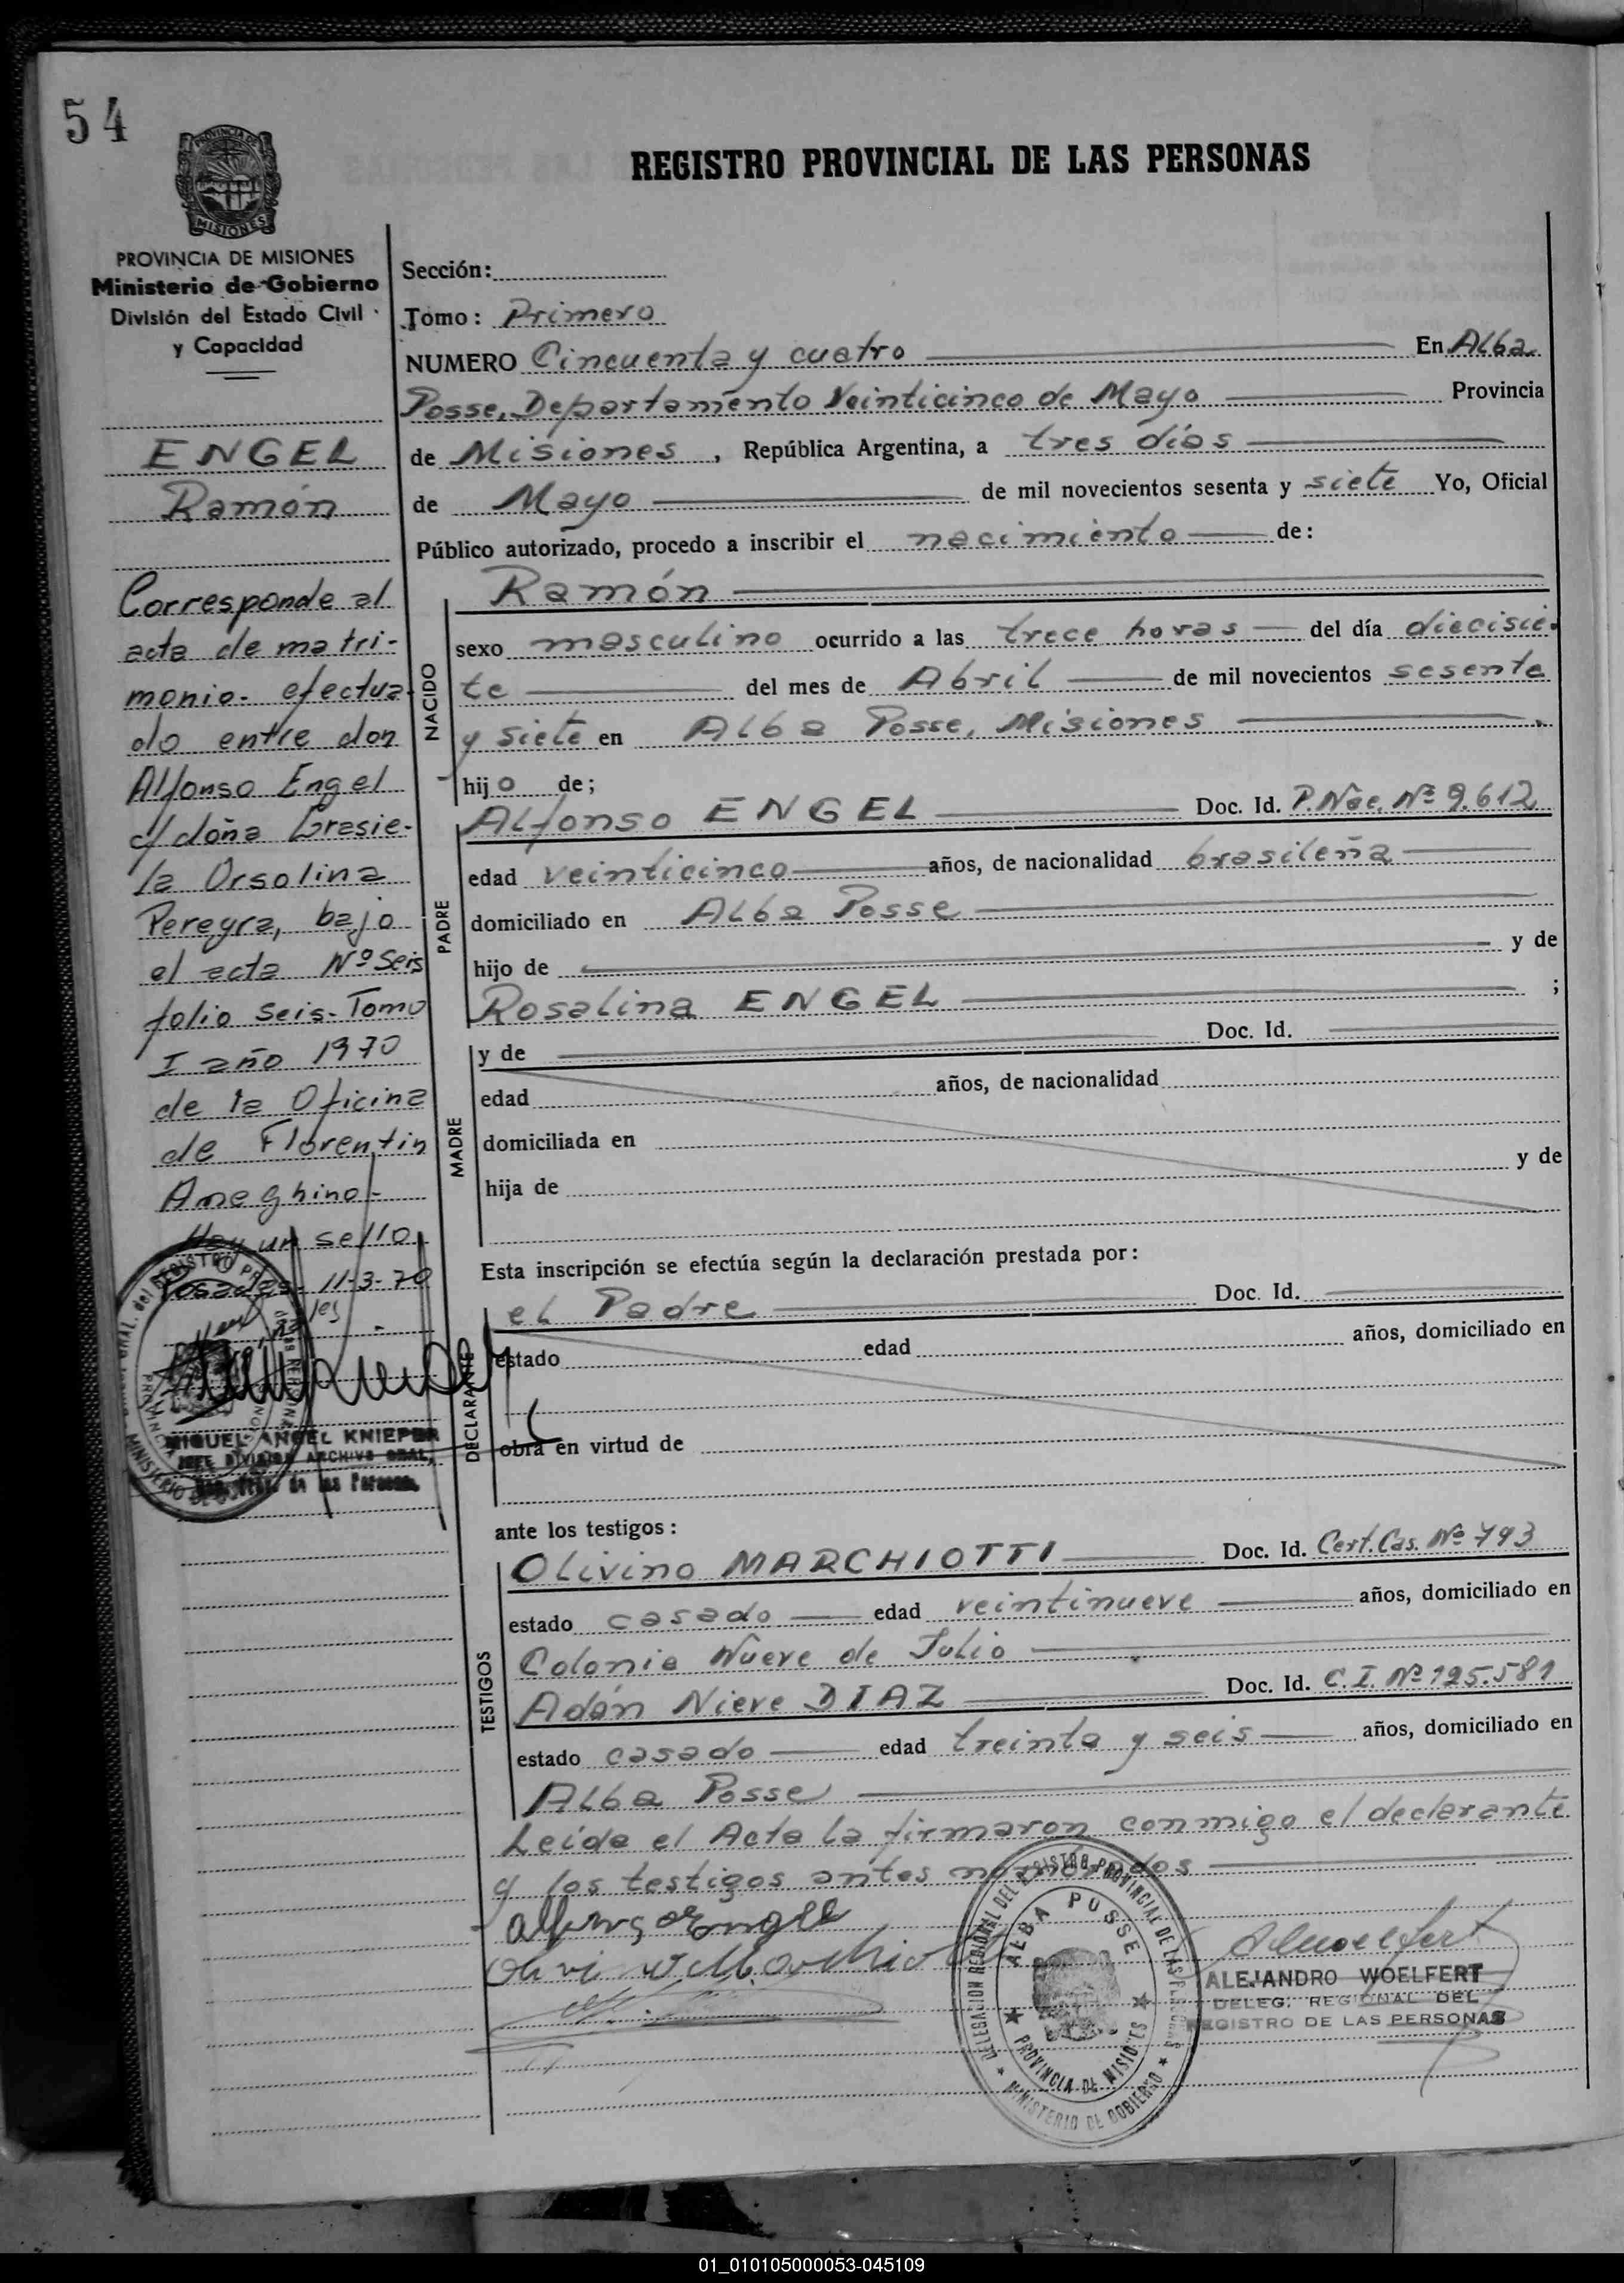 54
PROVINCIA DE
MISIONES
REGISTRO PROVINCIAL DE LAS PERSONAS
PROVINCIA DE MISIONES
Ministerio de Gobierno
División del Estado Civil
y Capacidad
ENGEL
Ramón
Corresponde al
acta de matri-
monio- efectua-
do entre don
Alfonso Engel
y doña Grasie-
la Orsolina
Pereyra, bajo
el acta Nº Seis
folio Seis-Tomo
I año 1970
de la Oficina
de Florentin
Ameghino-
Hay un sello
Posadas- 11-3-70
MIGUEL ANGEL KNIEPER
JEFE DIVISION ARCHIVO GRAL.
de las Personas
Sección:
Tomo: Primero
NUMERO Cincuenta y cuatro En Alba
Posse, Departamento Veinticinco de Mayo Provincia
de Misiones, República Argentina, a tres días
de Mayo de mil novecientos sesenta y siete Yo, Oficial
Público autorizado, procedo a inscribir el nacimiento de:
NACIDO
Ramón
sexo masculino ocurrido a las trece horas del día diecisie-
te del mes de Abril de mil novecientos sesenta
y siete en Alba Posse, Misiones
hijo de;
PADRE
Alfonso ENGEL Doc. Id. P.Nac. Nº 9.612
edad veinticinco años, de nacionalidad brasileña
domiciliado en Alba Posse
hijo de y de
Rosalina ENGEL ;
MADRE
y de Doc. Id.
edad años, de nacionalidad
domiciliada en
hija de y de
Esta inscripción se efectúa según la declaración prestada por:
DECLARANTE
el Padre Doc. Id.
estado edad años, domiciliado en
obra en virtud de
ante los testigos:
TESTIGOS
Olivino MARCHIOTTI Doc. Id. Cert.Cas. Nº 793
estado casado edad veintinueve años, domiciliado en
Colonia Nueve de Julio
Adán Nieve DIAZ Doc. Id. C.I. Nº 125.581
estado casado edad treinta y seis años, domiciliado en
Alba Posse
Leída el Acta la firmaron conmigo el declarante
y los testigos antes nombrados
DELEGACION REGIONAL DEL REGISTRO PROVINCIAL DE LAS PERSONAS
ALBA POSSE
PROVINCIA DE MISIONES
MINISTERIO DE GOBIERNO
ALEJANDRO WOELFERT
DELEG. REGIONAL DEL
REGISTRO DE LAS PERSONAS
01_010105000053-045109